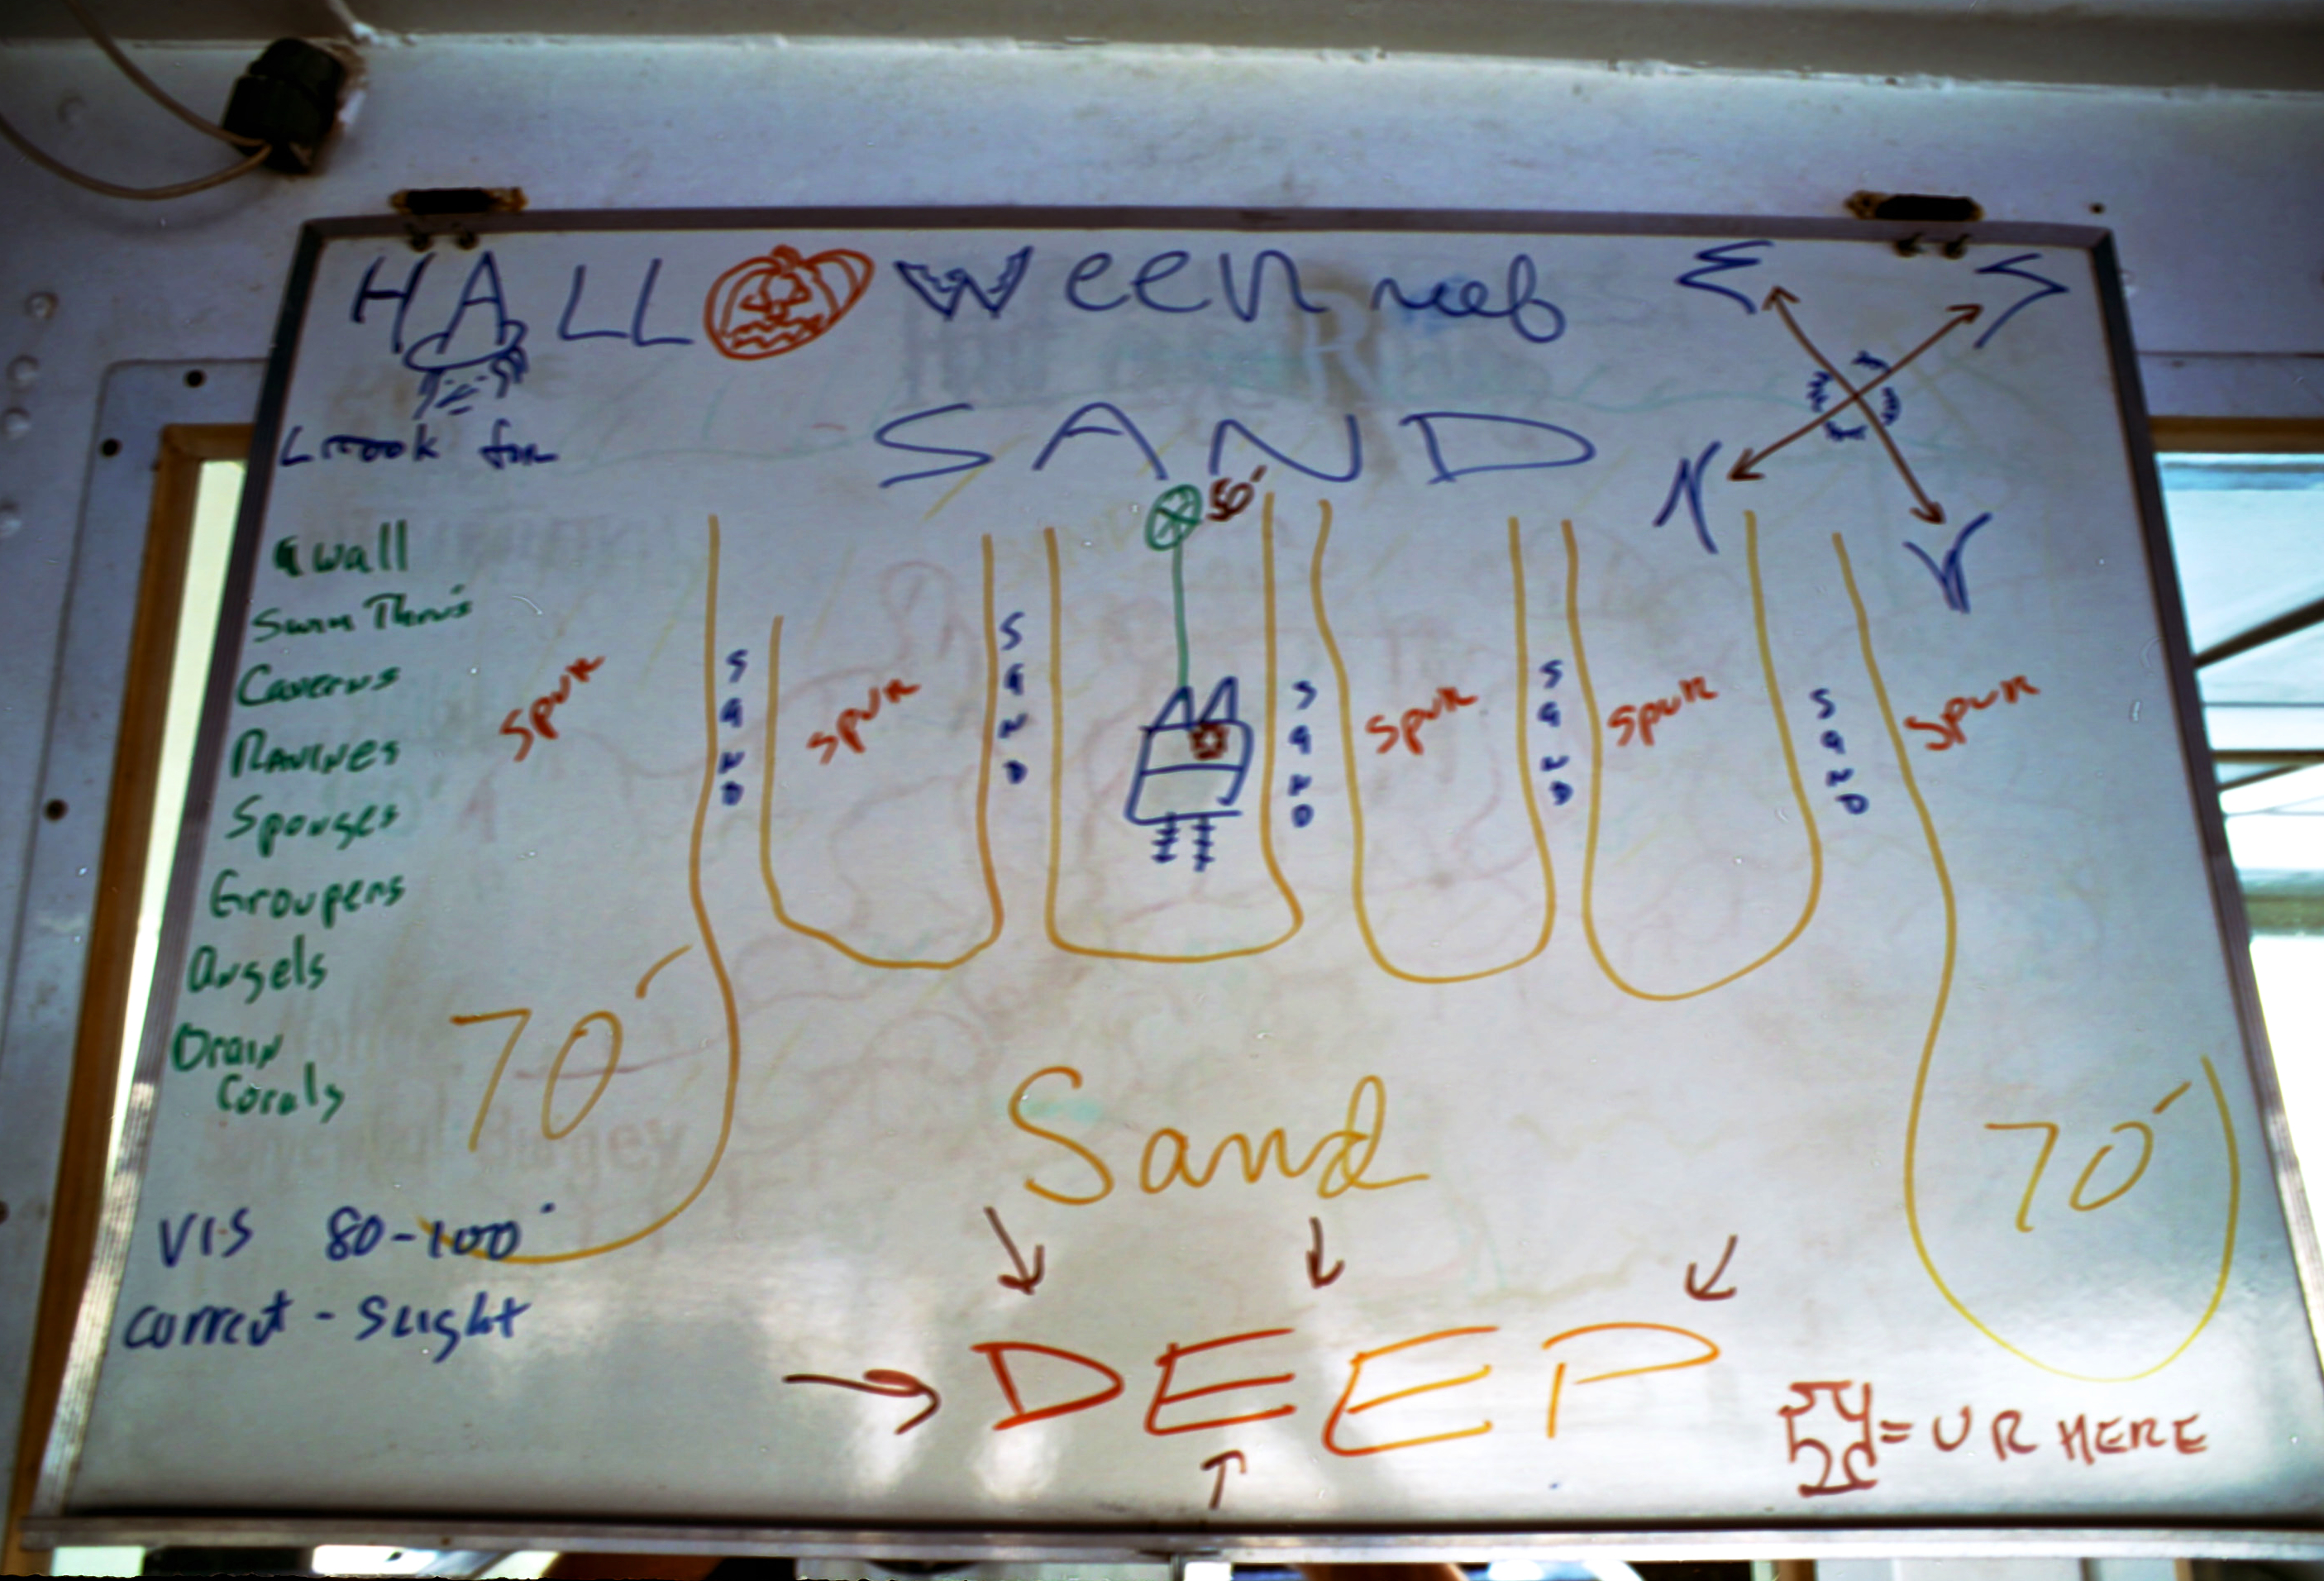 HALLOween reef
E S
N W
Look for
SAND
50'
wall
Swim Thru's
Caverns
Ravines
Sponges
Groupers
Angels
Brain
Corals
Spur
SAND
Spur
SAND
SAND
Spur
SAND
Spur
SAND
Spur
70'
70'
Sand
VIS 80-100'
current - Slight
DEEP
= U R HERE